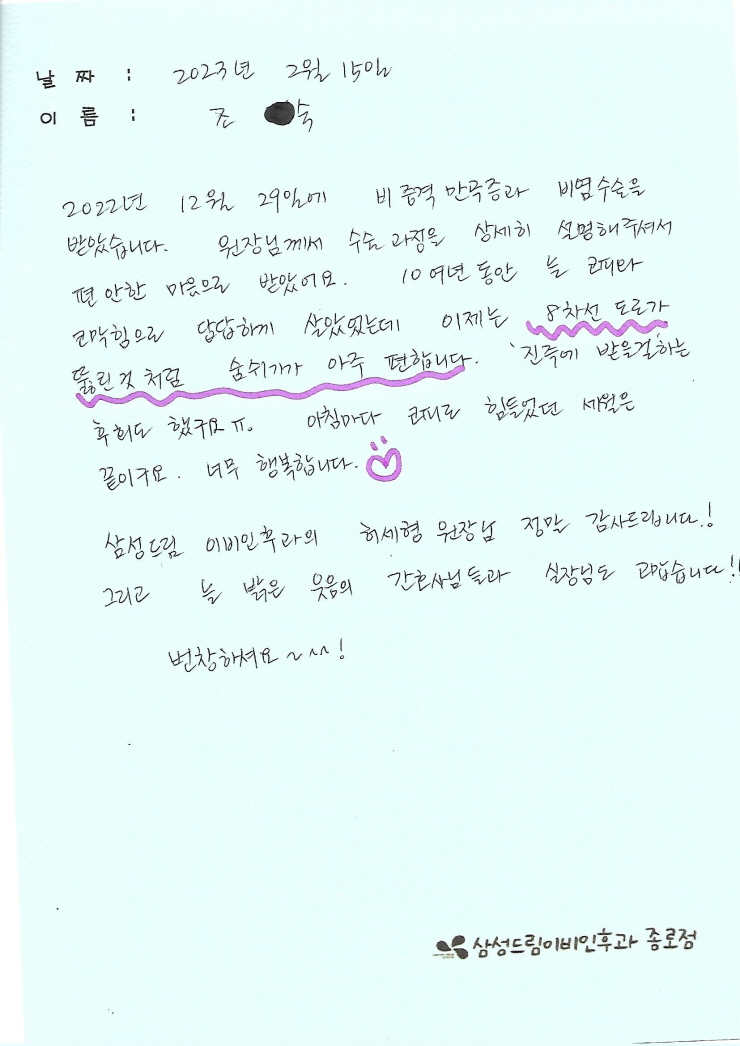 날 짜 : 2023년 2월 15일
이 름 : 조 숙
2022년 12월 29일에 비중격만곡증과 비염수술을
받았습니다. 원장님께서 수술과정을 상세히 설명해주셔서
편안한 마음으로 받았어요. 10여년 동안 늘 코피와
코막힘으로 답답하게 살았었는데 이제는 8차선 도로가
뚫린 것 처럼 숨쉬기가 아주 편합니다. '진즉에 받을걸'하는
후회도 했구요ㅠ. 아침마다 코피로 힘들었던 세월은
끝이구요. 너무 행복합니다.
삼성드림 이비인후과의 허세형 원장님 정말 감사드립니다.!
그리고 늘 밝은 웃음의 간호사님들과 실장님도 고맙습니다!!
번창하셔요~^^!
삼성드림이비인후과 종로점